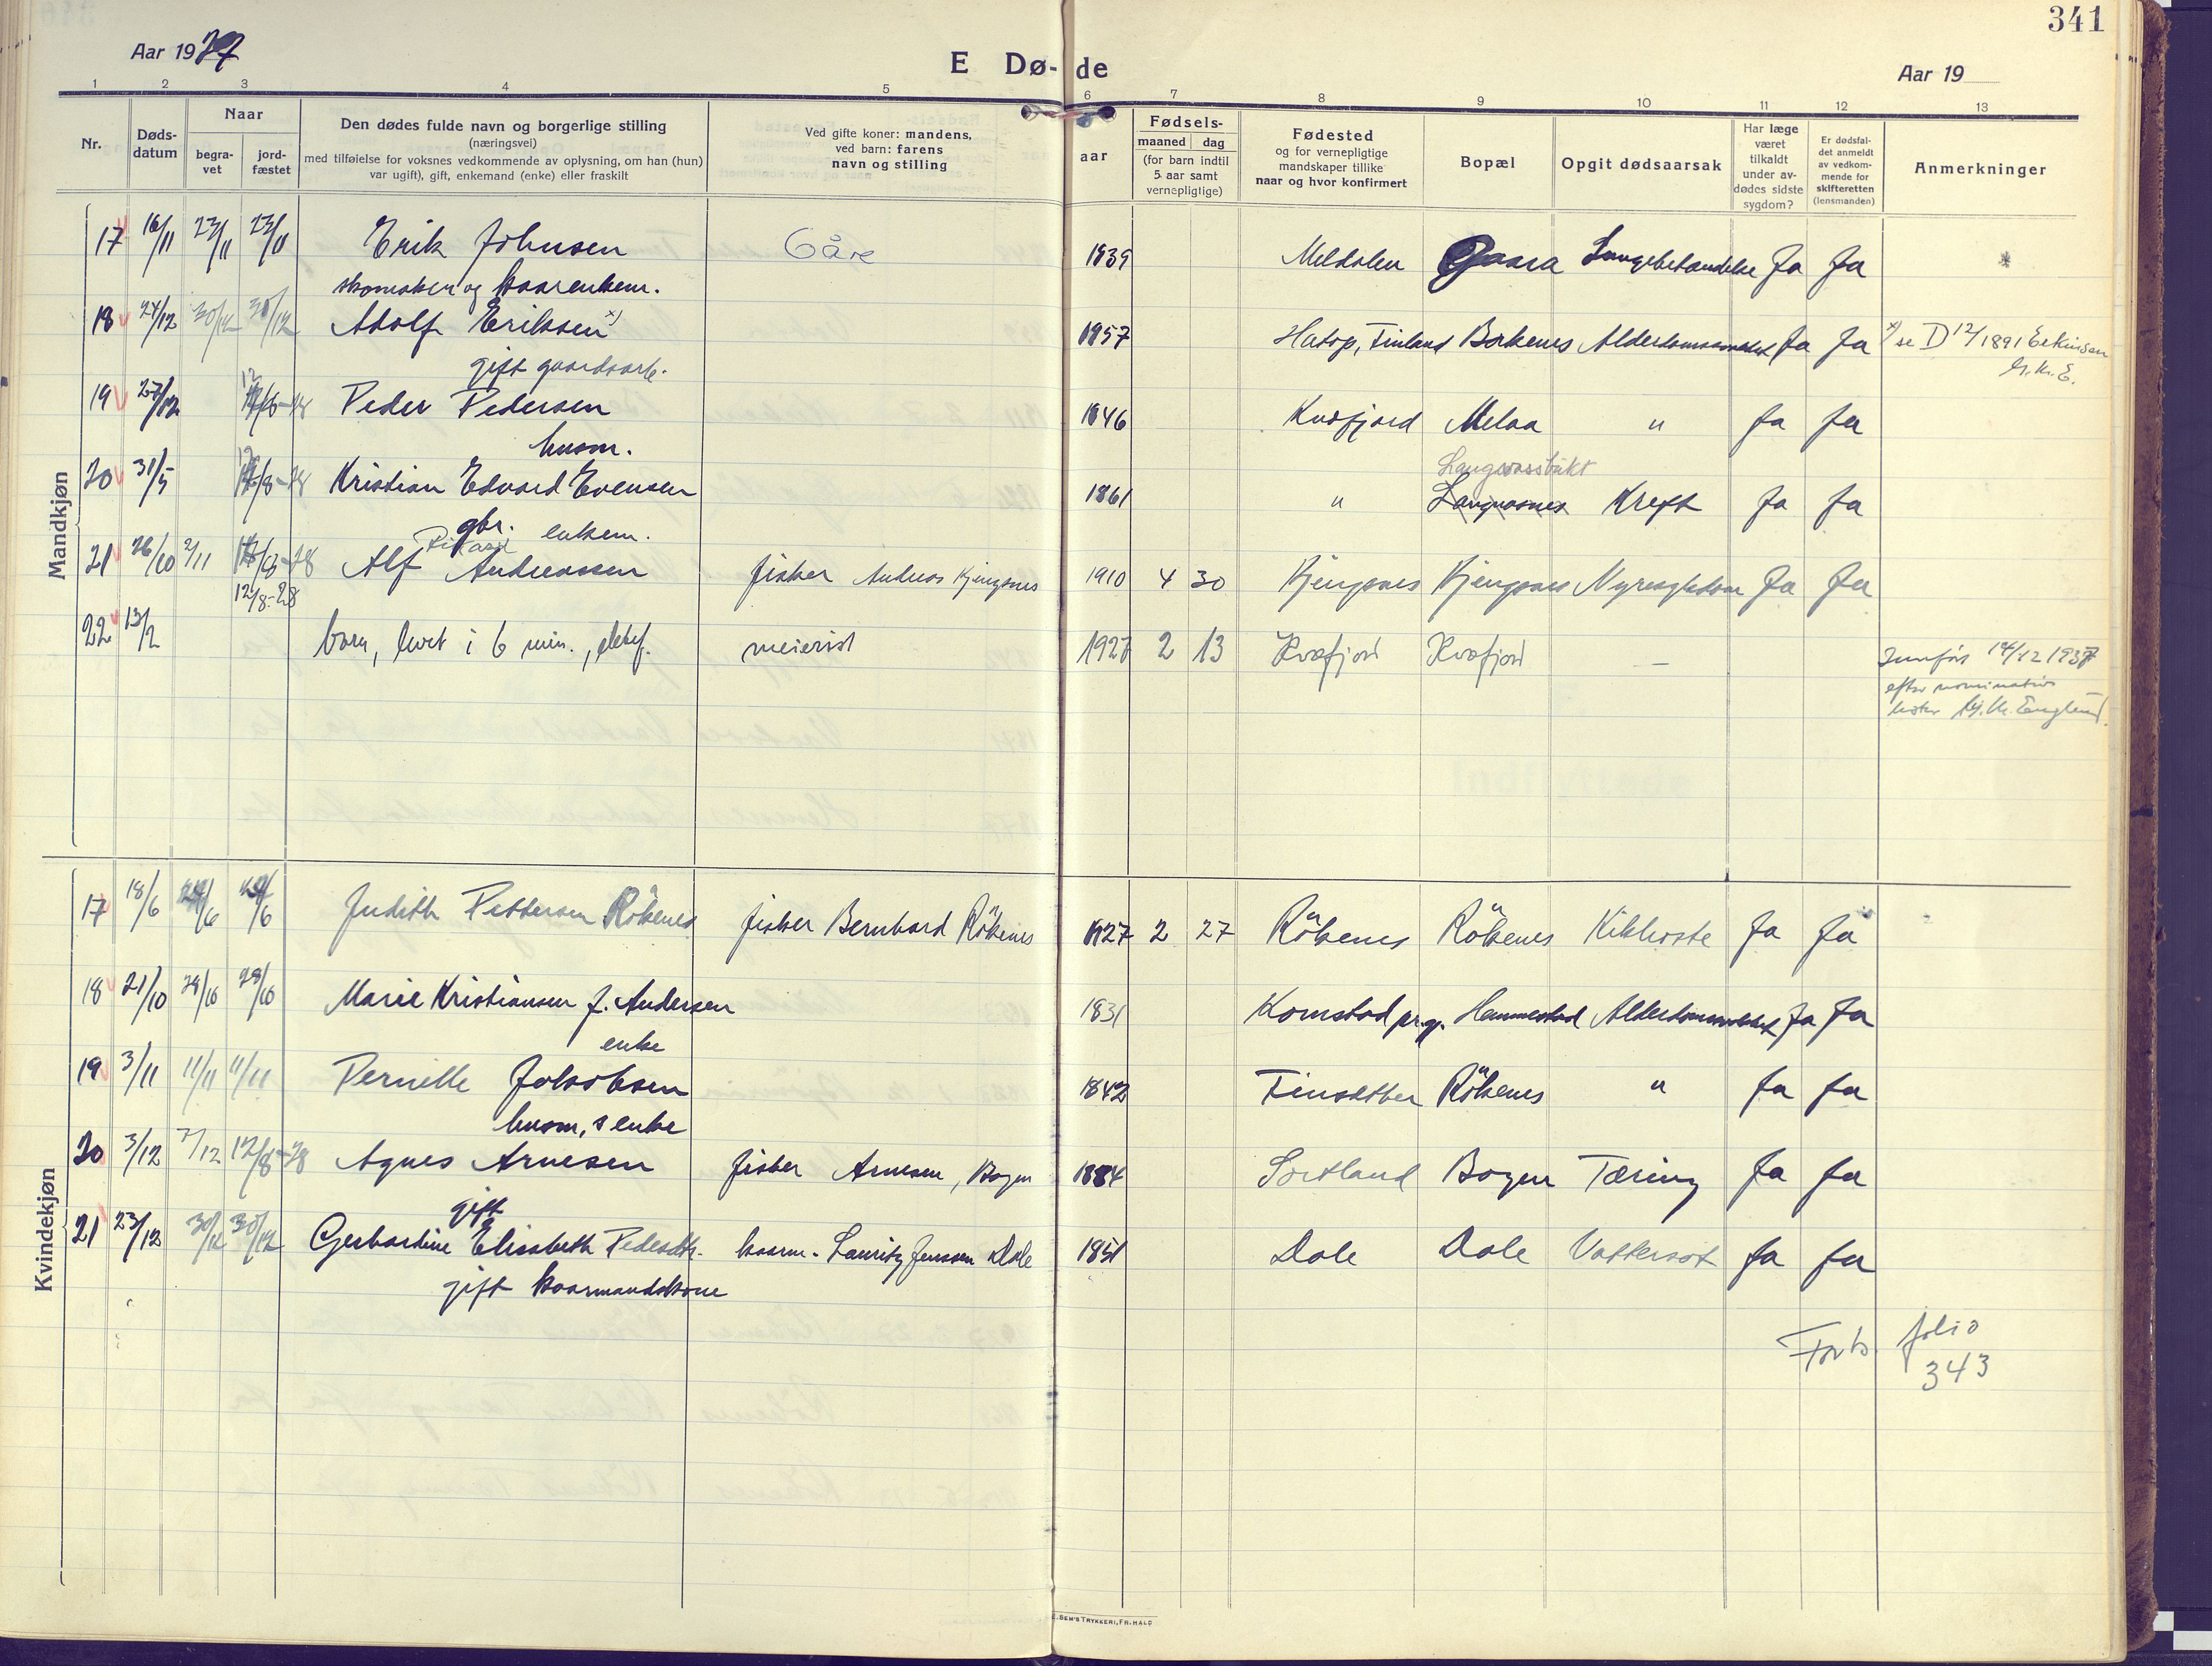 341
Aar 1927
E Dø- de
Aar 19
1 2 3 4 5 6 7 8 9 10 11 12 13
Nr.
Døds-
datum
Naar
begra-
vet
jord-
fæstet
Den dødes fulde navn og borgerlige stilling
(næringsvei)
med tilføielse for voksnes vedkommende av oplysning, om han (hun)
var ugift), gift, enkemand (enke) eller fraskilt
Ved gifte koner: mandens,
ved barn: farens
navn og stilling
aar
Fødsels-
maaned dag
(for barn indtil
5 aar samt
vernepligtige)
Fødested
og for vernepligtige
mandskaper tillike
naar og hvor konfirmert
Bopæl
Opgit dødsaarsak
Har læge
været
tilkaldt
under av-
dødes sidste
sygdom?
Er dødsfal-
det anmeldt
av vedkom-
mende for
skifteretten
(lensmanden)
Anmerkninger
Mandkjøn
17 16/11 23/11 23/11 Erik Johnsen Gåre 1839 Meldalen Gaara Lungebetændelse Ja Ja
skomaker og kaarenkem.
18 24/12 30/12 30/12 Adolf Eriksen x) 1857 Hatop, Finland Borkenes Alderdomssvakhet Ja Ja x/ se D 12/1891 Erkinsen
gift gaardsarb. Hj. Kr. E.
19 27/12 12/8-28 Peder Pedersen 1846 Kvæfjord Melaa " Ja Ja
husm.
Langvassbukt
20 31/5 12/8-28 Kristian Edvard Evensen 1861 " Langvasnes Kreft Ja Ja
gbr. enkem.
21 26/10 2/11 12/8-28 Alf Rikard Andreassen fisker Andreas Kjengsnes 1910 4 30 Kjengsnes Kjengsnes Nyresygdom Ja Ja
12/8-28
22 13/2 barn, levet i 6 min., meierist 1927 2 13 Kvæfjord Kvæfjord — Innført 14/12 1937
efter nominative
lister Hj. Kr. Englund.
Kvindekjøn
17 18/6 /6 /6 Judith Pettersen Rökenes fisker Bernhard Rökenes 1927 2 27 Rökenes Rökenes Kikhoste Ja Ja
18 21/10 28/10 28/10 Marie Kristiansen f. Andersen 1831 Komstad pr.gj. Hemmestad Alderdomssvakhet Ja Ja
enke
19 3/11 11/11 11/11 Pernille Jakobsen 1842 Finsæter Rökenes " Ja Ja
husm,s enke
20 3/12 7/12 12/8-28 Agnes Arnesen fisker Arnesen, Bogen 1884 Sortland Bogen Tæring Ja Ja
gift
21 23/12 30/12 30/12 Gerhardine Elisabeth Pedersdtr. kaarm. Lauritz Jenssen Dale 1851 Dale Dale Vattersot Ja Ja
gift kaarmandskone
Forts. folio
343
E. SEM'S TRYKKERI, FR. HALD